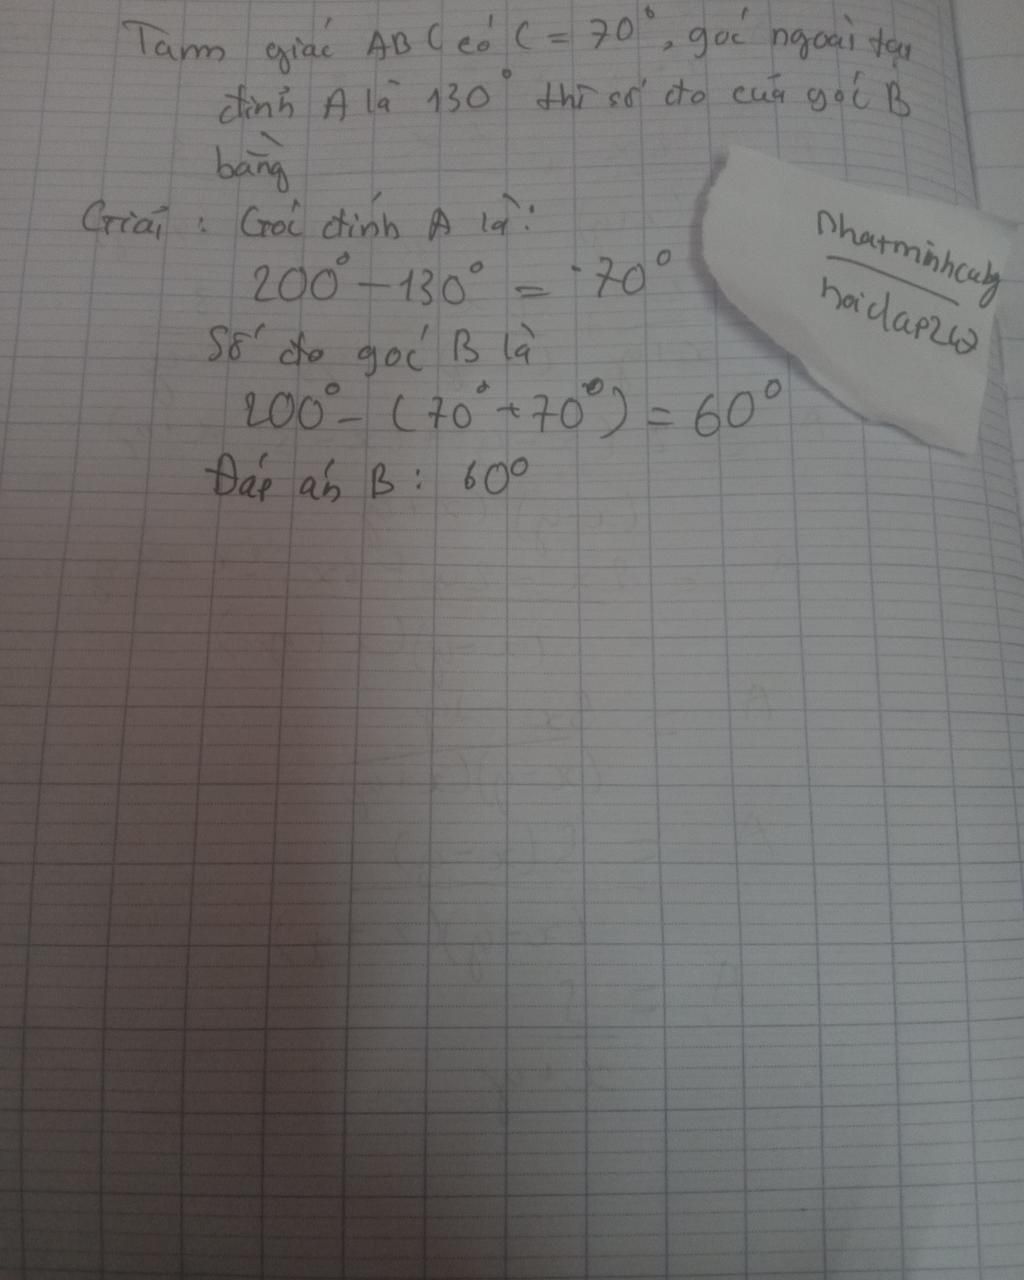 Tam giác ABC có C = 70°, góc ngoài tại
đỉnh A là 130° thì số đo của góc B
bằng
Giải : Góc đỉnh A là:
200° - 130° = 70°
Số đo góc B là
200° - (70° + 70°) = 60°
Đáp án B : 60°
nhatminhcubg
hoidap247